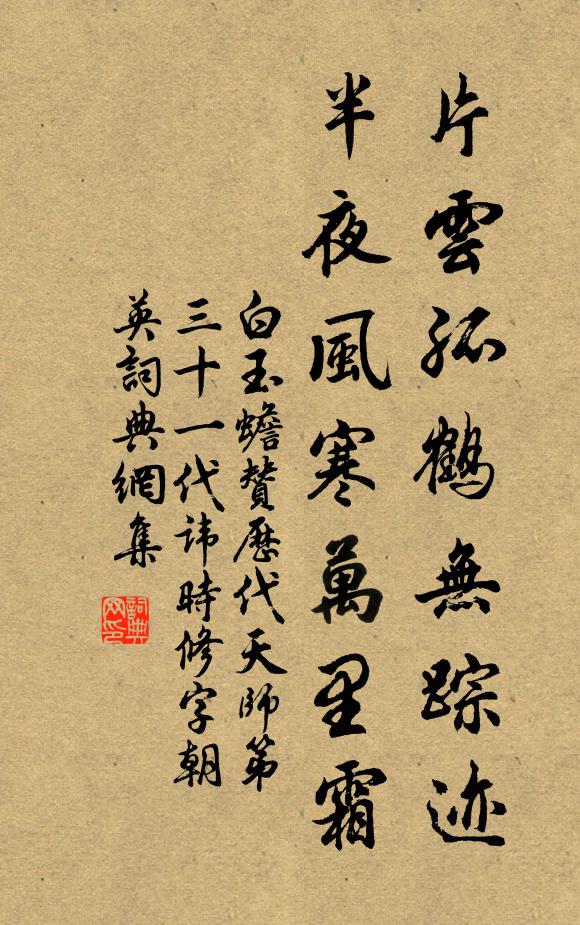 片雲孤鶴無踪迹
半夜風寒萬里霜
白玉蟾贊歷代天師第
三十一代諱時修字朝
英詞典網集
詞典网印